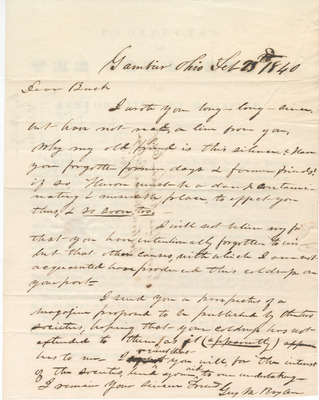 Gambier Ohio Feb 23rd 1840
Dear Buck
I wrote you long - long - since,
but have not rec'd a line from you,
Why my old friend is this silence & Have
you forgotten former days & former friends?
if so Huron must be a den & contami-
nating & miserable place, to effect you
thus, & so soon too.
I will not blame my fr
that you have intentionally forgotten to
but that other causes with which I am not
acquainted have produced this coldness on
your part -
I send you a Prospectus of a
magazine proposed to be published by the two
societies, hoping that your coldness has not
extended to them, as it (apparently)
has to me I request that you will for the interest
of the societies lend your aid to our undertaking -
I remain Your Sincere Friend
Guy M Bryan